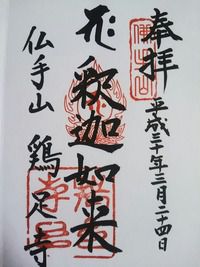 奉拝
平成三十年三月二十四日
釈迦如来
仏手山 鶏足寺